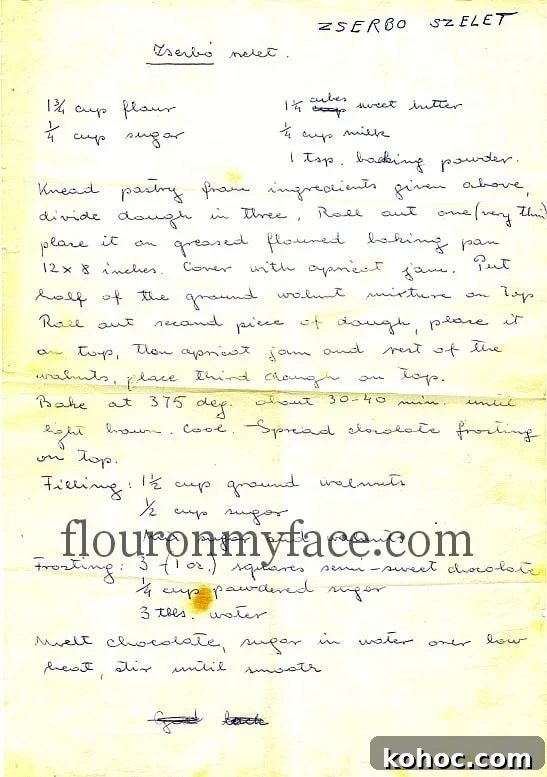 ZSERBO SZELET
Zserbó szelet.
1 3/4 cup flour
1 1/4 cubes sweet butter
1/4 cup sugar
1/4 cup milk
1 tsp. backing powder.
Knead pastry from ingredients given above,
divide dough in three, Roll out one (very thin)
place it on greased floured baking pan
12 x 8 inches. Cover with apricot jam. Put
half of the ground walnut mixture on top
Roll out second piece of dough, place it
on top, then apricot jam and rest of the
walnuts, place third dough on top.
Bake at 375 deg. about 30-40 min. until
light brown. Cool. Spread chocolate frosting
on top.
Filling: 1 1/2 cup ground walnuts
1/2 cup sugar
sugar and walnuts
flouronmyface.com
Frosting: 3 (1 oz.) squares semi-sweet chocolate
1/4 cup powdered sugar
3 tbls. water
Melt chocolate, sugar in water over low
heat, stir until smooth
Good luck
kohoc.com